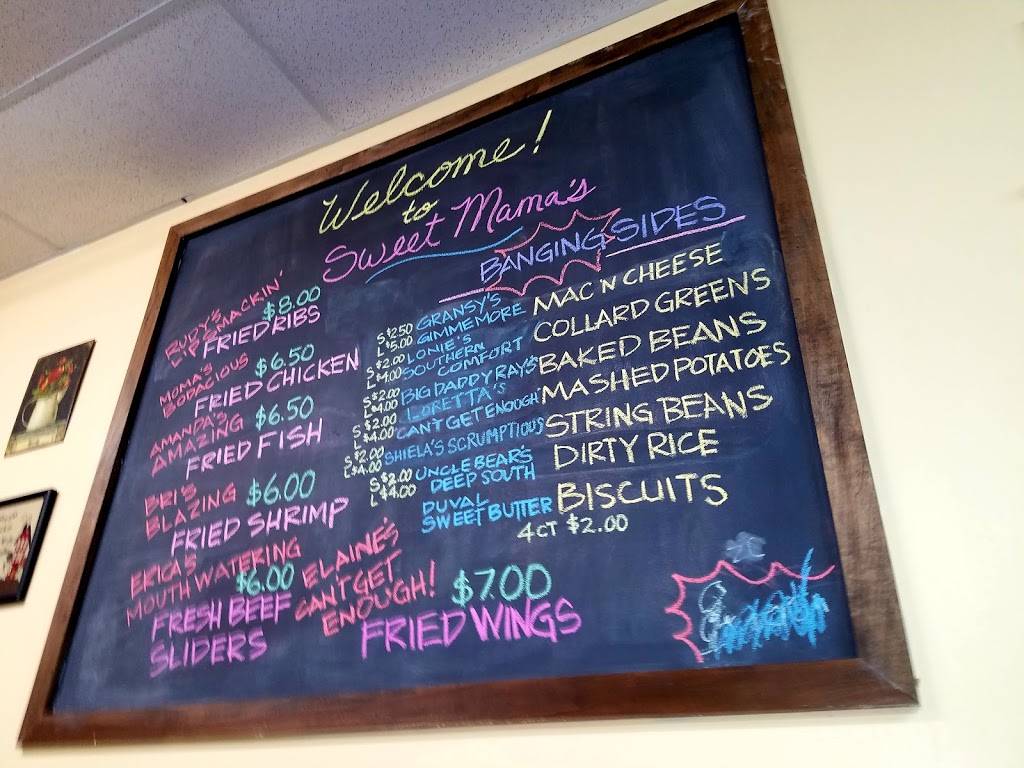 Welcome!
to
Sweet Mama's
RUDY'S
LIP SMACKIN' $8.00
FRIED RIBS
MOMA'S
BODACIOUS $6.50
FRIED CHICKEN
AMANDA'S
AMAZING $6.50
FRIED FISH
BRI'S
BLAZING $6.00
FRIED SHRIMP
ERICA'S
MOUTHWATERING
$6.00
FRESH BEEF
SLIDERS
ELAINE'S
CAN'T GET
ENOUGH! $7.00
FRIED WINGS
BANGING SIDES
S $2.50 GRANSY'S
L $5.00 GIMMEMORE MAC 'N CHEESE
S $2.00 LONIE'S
L $4.00 SOUTHERN
COMFORT COLLARD GREENS
S $2.00 BIG DADDY RAY'S BAKED BEANS
L $4.00
S $2.00 LORETTA'S
L $4.00 CAN'T GET ENOUGH MASHED POTATOES
S $2.00 SHIELA'S SCRUMPTIOUS STRING BEANS
L $4.00
S $2.00 UNCLE BEAR'S
L $4.00 DEEP SOUTH DIRTY RICE
DUVAL
SWEET BUTTER BISCUITS
4CT $2.00